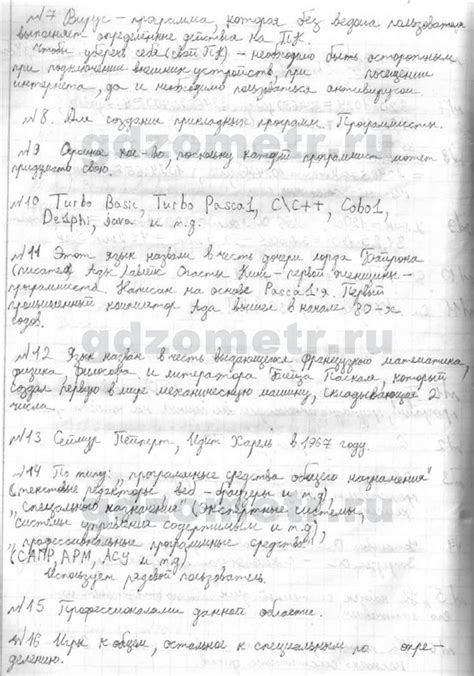 №7 Вирус – программа, которая без ведома пользователя
выполняет определённые действия на ПК.
Чтобы уберечь себя (свой ПК) – необходимо быть осторожным
при подключении внешних устройств, при посещении
интернета, да и необходимо пользоваться антивирусом.
№8. Для создания прикладных программ. Программисты.
gdzometr.ru
№9 Огромное кол-во, поскольку каждый программист может
придумать свою.
№10 Turbo Basic, Turbo Pascal, C\C++, Cobol,
Delphi, java и т.д.
№11 Этот язык назвали в честь дочери лорда Байрона
(писателя) Ады Лавлейс – первой женщины –
программиста. Написан на основе Pascal'я. Первый
промышленный компилятор Ада вышел в начале 80-х
годов.
gdzometr.ru
№12 Язык назван в честь выдающегося французского математика,
физика, философа и литератора Блеза Паскаля, который
создал первую в мире механическую машину, складывающая 2
числа.
№13 Сеймур Пейперт, Идит Харель в 1967 году.
№14 По типу: „программные средства общего назначения"
(текстовые редакторы, веб-браузеры и т.д),
„специального назначения" (экспертные системы,
системы управления содержимым и т.д)
gdzometr.ru
„профессиональные программные средства"
(САПР, АРМ, АСУ и т.д).
Использует рядовой пользователь.
№15 Профессионалами данной области.
№16 Игры к общем, остальное к специальным по опре-
делению.